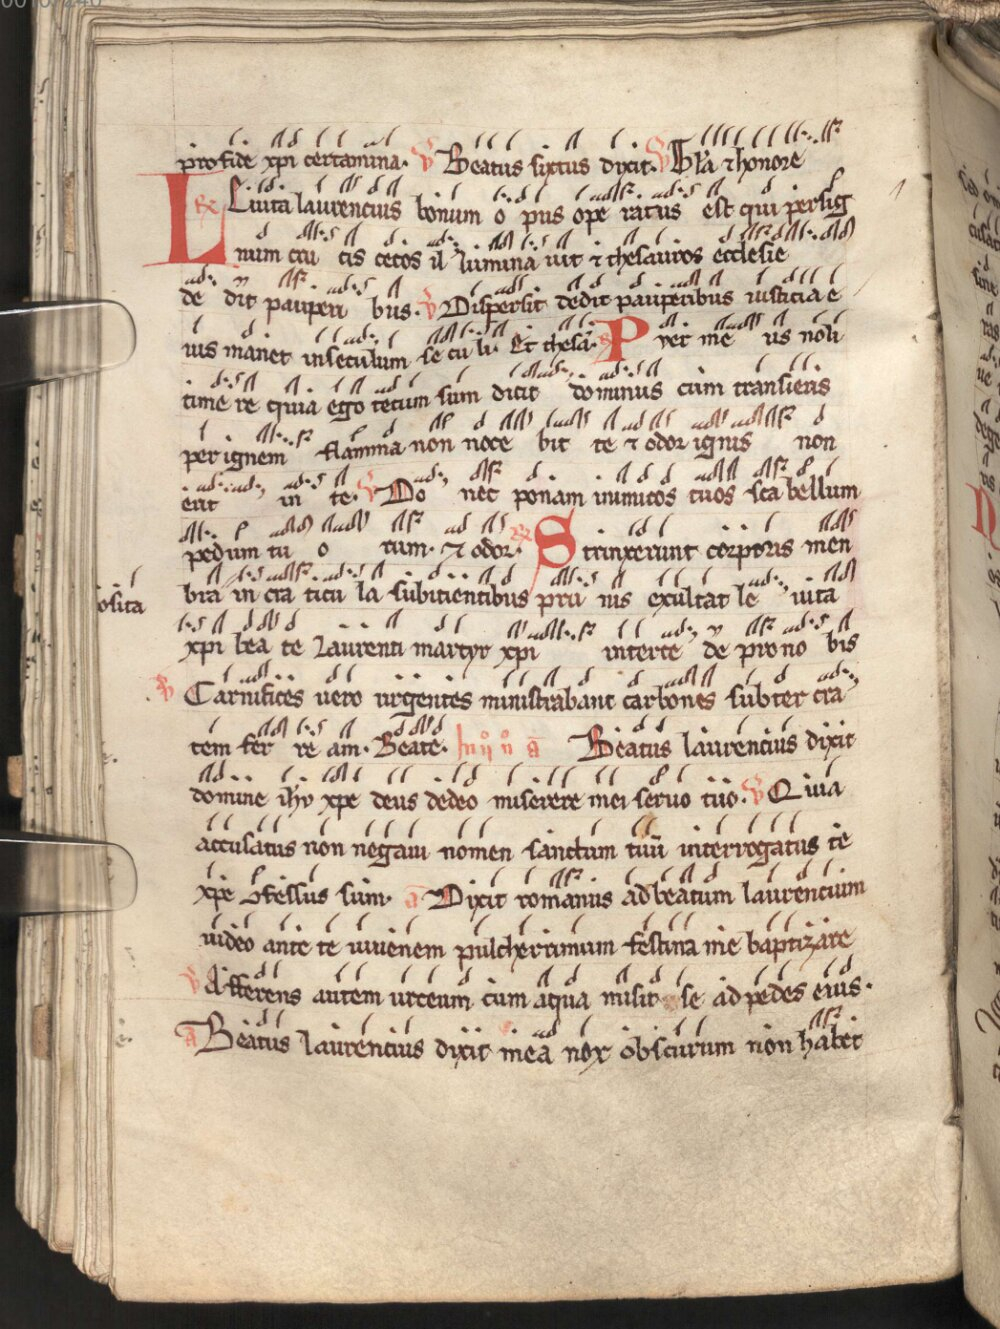 pro fide xpi certamina. V Beatus sixtus dixit. V Gła ⁊ honore
R Leuita laurencius bonum o pus ope ratus est qui per sig
num cru cis cecos il lumina uit ⁊ thesauros ecclesie
de dit pauperi bus. V Dispersit dedit pauperibus iusticia e
ius manet in seculum se cu li. Et thesa. R Puer me us noli
time re quia ego tecum sum dicit dominus cum transieris
per ignem flamma non noce bit te ⁊ odor ignis non
erit in te. V Do nec ponam inimicos tuos sca bellum
pedum tu o rum. ⁊ odor. R Strinxerunt corporis men
osita
bra in cra ticu la subitientibus pru nis exultat le uita
xpi bea te Laurenti martyr xpi interce de pro no bis
V Carnifices uero urgentes ministrabant carbones subter cra
tem fer re am. Beate. A Beatus laurencius dixit
domine ihu xpe deus de deo miserere mei seruo tuo. V Quia
accusatus non negaui nomen sanctum tuum interrogatus te
xpe ɔfessus sum. a Dixit romanus ad beatum laurencium
uideo ante te iuuenem pulcherrimum festina me baptizare
V Afferens autem urceum cum aqua misit se ad pedes eius.
a Beatus laurencius dixit mea nox obscurum non habet